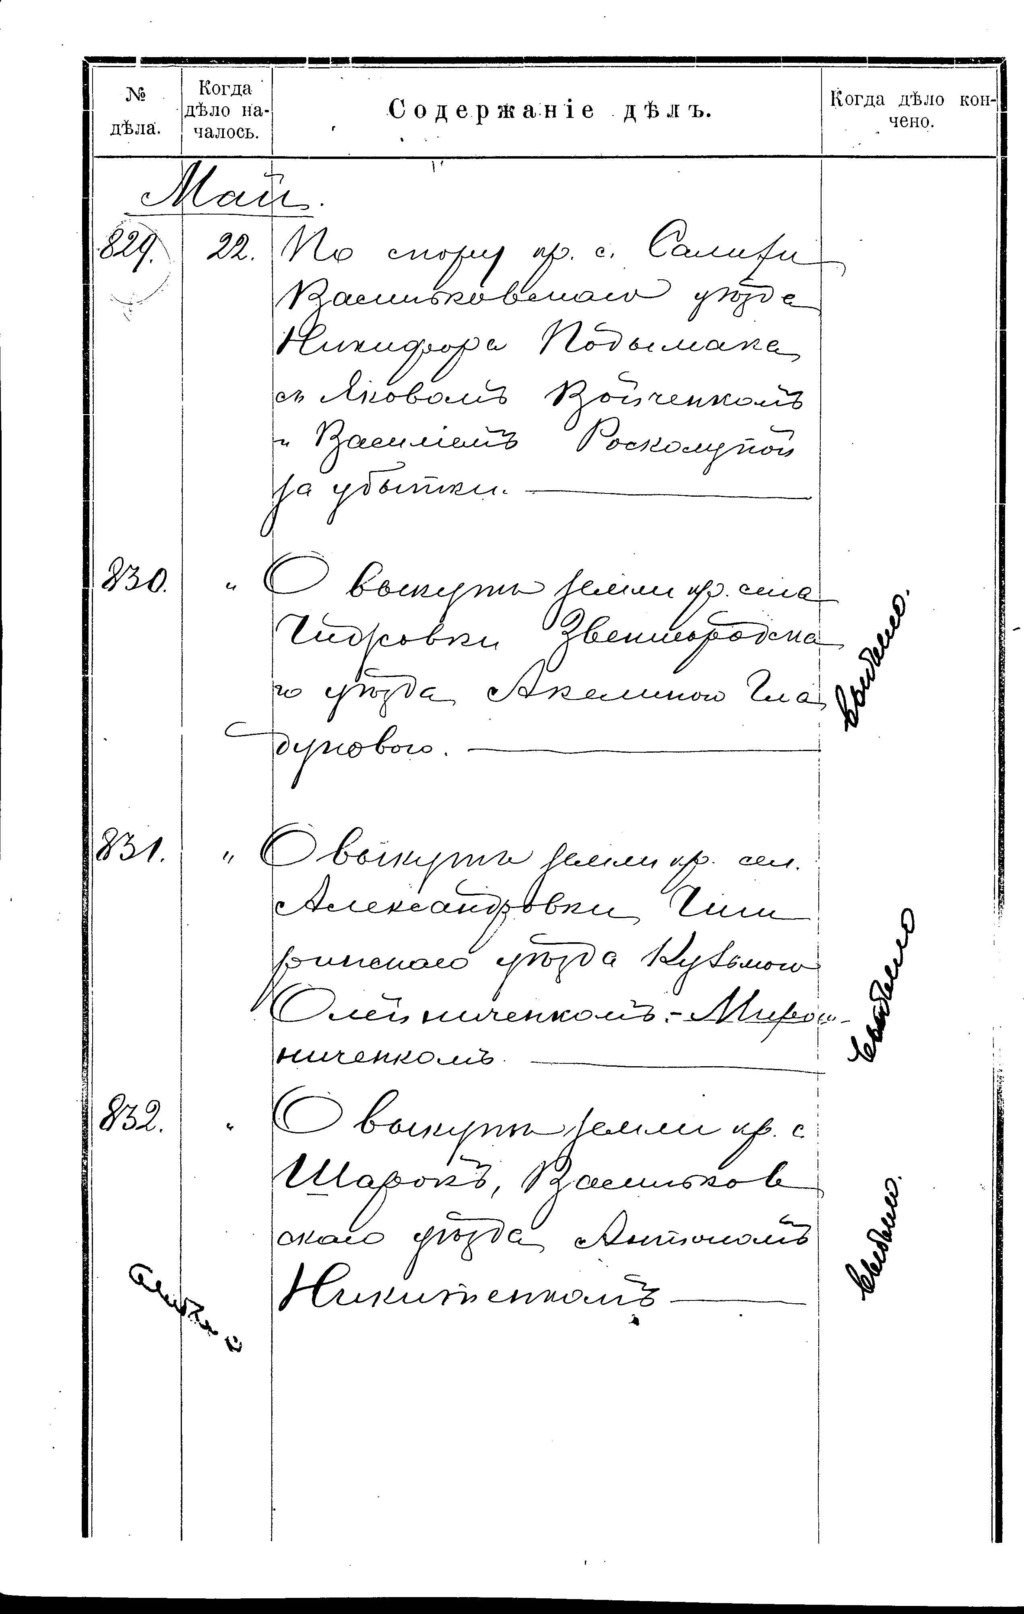 № дѣла.
Когда дѣло началось.
Содержаніе дѣлъ.
Когда дѣло кончено.
Май.
829. 22. По спору кр. с. Салихи
Васильковскаго уѣзда
Никифора Подымака
съ Яковомъ Войченкомъ
и Василіемъ Росколупой
за убытки.
830. " О выкупѣ земли кр. села
Звенигородска
го уѣзда Акелиною Гла
дуновою.
выбыло.
831. " О выкупѣ земли кр. сел.
Александровки Чиги
ринскаго уѣзда Кузьмою
Олейниченкомъ-Мирош-
ниченкомъ.
выбыло
832. " О выкупѣ земли кр. с.
Шарокъ, Васильков
скаго уѣзда Антономъ
Никитенкомъ
выбыло.